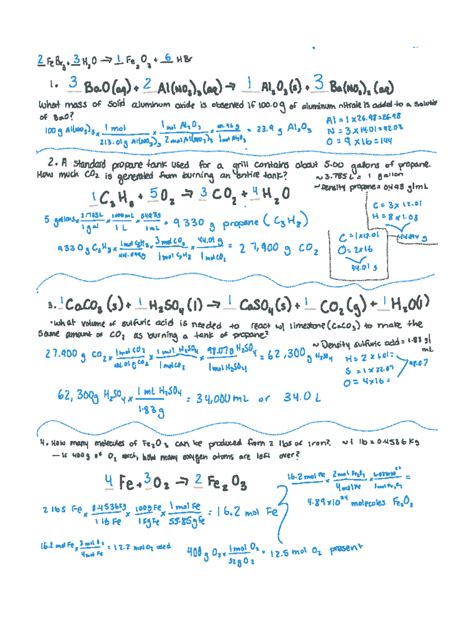 2 FeBr3 + 3 H2O → 1 Fe2O3 + 6 HBr
1. 3 BaO(aq) + 2 Al(NO3)3(aq) → 1 Al2O3(s) + 3 Ba(NO3)2(aq)
What mass of solid aluminum oxide is observed if 100.0g of aluminum nitrate is added to a solution
of BaO?
100g Al(NO3)3 × 1 mol × 1 mol Al2O3 = 23.9 g Al2O3
Al = 1 × 26.98
N = 3 × 14.01
O = 9 × 16 = 144
2. A standard propane tank used for a grill contains about 5.00 gallons of propane.
How much CO2 is generated from burning an entire tank?
~ 3.785 L = 1 gallon
~ Density propane = 0.493 g/mL
1 C3H8 + 5 O2 → 3 CO2 + 4 H2O
5 gallons × 3.785L/1 gal × 1000mL/1 L × = 9330 g propane (C3H8)
C = 3 × 12.01
H = 8 × 1.08
9330 g C3H8 × 1 mol C3H8 × 3 mol CO2/1 mol C3H8 × 44.01 g = 27,900 g CO2
C = 1 × 12.01
O = 2 × 16
44.01 g
3. 1 CaCO3(s) + 1 H2SO4(l) → 1 CaSO4(s) + 1 CO2(g) + 1 H2O(l)
• What volume of sulfuric acid is needed to react w/ limestone (CaCO3) to make the
same amount of CO2 as burning a tank of propane?
~ Density sulfuric acid = 1.83 g/mL
27,900 g CO2 × 1 mol CO2 × 1 mol H2SO4/1 mol CO2 × 98.07g H2SO4 = 62,300g H2SO4
H = 2 × 1.01
S =
O = 4 × 16
98.07
62,300g H2SO4 × 1 mL H2SO4/1.83g = 34,000 mL or 34.0 L
4. How many molecules of Fe2O3 can be produced from 2 lbs of iron? ~ 1 lb = 0.4536 kg
— is 400g of O2 each, how many oxygen atoms are left over?
4 Fe + 3 O2 → 2 Fe2O3
16.2 mol Fe × 2 mol Fe2O3/4 mol Fe ×
4.89×10²⁴ molecules Fe2O3
2 lbs Fe × 0.4536 kg/1 lb Fe × × 1 mol Fe/55.85g Fe = 16.2 mol Fe
16.2 mol Fe × 3 mol O2/4 mol Fe = 12.2 mol O2
400g O2 × 1 mol O2/32g O2 = 12.5 mol O2 present